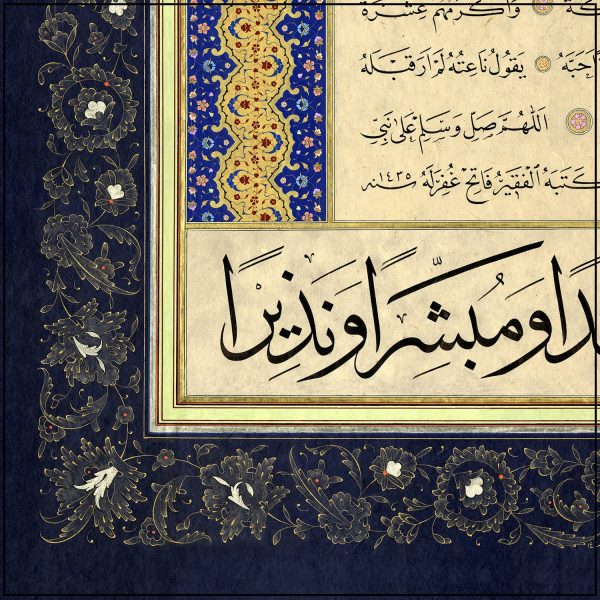 وَاَكْرَمُهُمْ عِشْرَةً
اَحَبَّهُ يَقُولُ نَاعِتُهُ لَمْ اَرَ قَبْلَهُ
اَللّٰهُمَّ صَلِّ وَسَلِّمْ عَلٰى نَبِيِّ
كَتَبَهُ الْفَقِيرُ فَاتِحْ غُفِرَ لَهُ سنه ١٤٣٥
وَمُبَشِّرًا وَنَذِيرًا